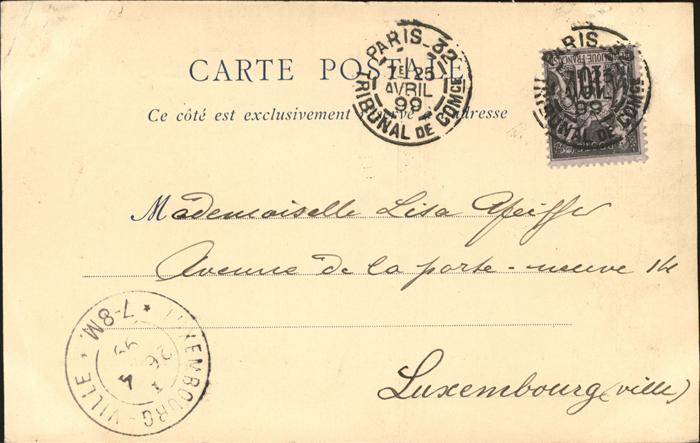 CARTE POSTALE
Ce côté est exclusivement réservé à l'adresse
PARIS-32
7E 25
AVRIL
99
TRIBUNAL DE COMCE
PARIS-32
10
AVRIL
99
TRIBUNAL DE COMCE
Mademoiselle Lisa Pfeiffer
Avenue de la porte-neuve 14
Luxembourg (ville)
LUXEMBOURG-VILLE
7-8M.
26
4
99